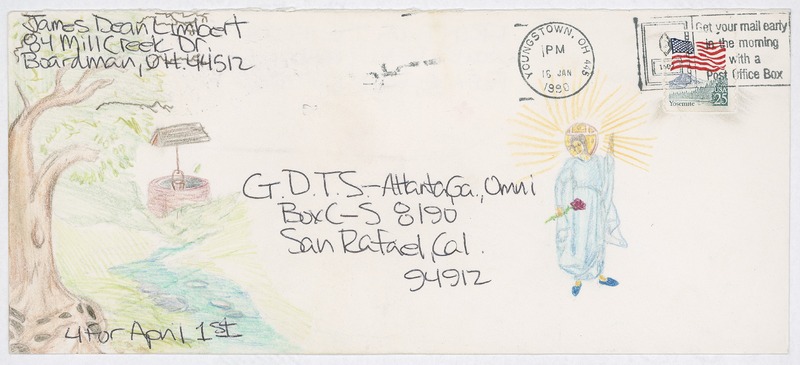 James Dean Limbert
84 Mill Creek Dr.
Boardman, OH. 44512
YOUNGSTOWN, OH 445
1PM
16 JAN
1990
Get your mail early
in the morning
with a
Post Office Box
USA
25
Yosemite
G.D.T.S.-Atlanta,Ga., Omni
Box C-S 8190
San Rafael, Cal.
94912
4 for April 1st